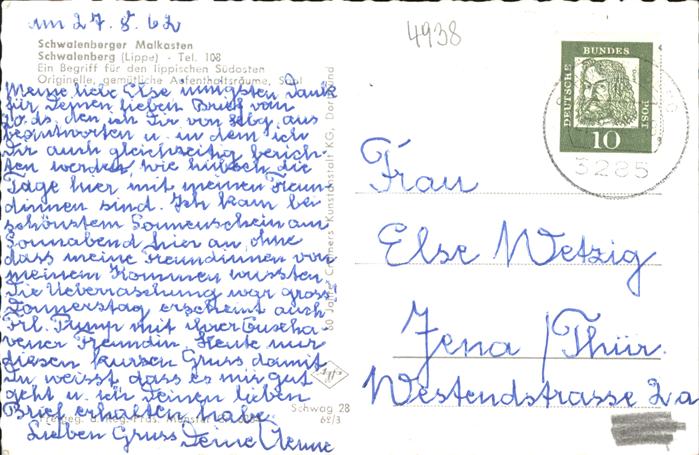 am 27.5.62
4938
Schwalenberger Malkasten
Schwalenberg (Lippe) - Tel. 108
Ein Begriff für den lippischen Südosten
Originelle, gemütliche Aufenthaltsräume,
Meine liebe Else innigsten Dank
für Deinen lieben Brief von
20. ds. den ich Dir von hier aus
beantworten u. in dem ich
Dir auch gleichzeitig berich-
ten werde, wie hübsch die
Tage hier mit meinen Freun-
dinnen sind. Ich kam bei
schönstem Sonnenschein am
Sonnabend hier an, ohne
dass meine Freundinnen von
meinem Kommen wussten.
Die Ueberraschung war gross
Donnerstag erscheint auch
Frl. Pump mit ihrer
Freundin. Heute nur
diesen kurzen Gruss damit
Du weisst, dass es mir gut
geht u. ich Deinen lieben
Brief erhalten habe.
Lieben Gruss Deine Aenne
60 Jahre Cramers Kunstanstalt KG, Dortmund
Schwag 28
62/3
DEUTSCHE
BUNDES
POST
10
3285
Frau
Else Wetzig
Jena / Thür.
Westendstrasse 2a